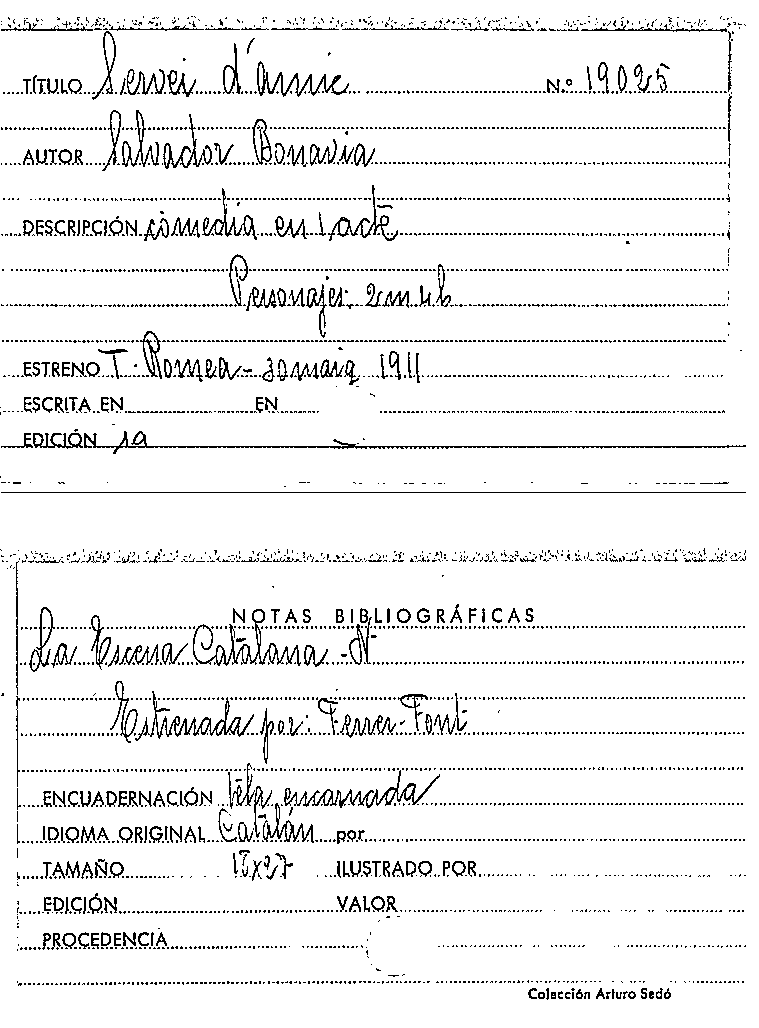 TÍTULO Servei d'amic N.º 19025
AUTOR Salvador Bonavia
DESCRIPCIÓN comedia en 1 acte
Personajes: 2m 4h
ESTRENO T. Romea - 30 maig 1911
ESCRITA EN EN
EDICIÓN 1a
NOTAS BIBLIOGRÁFICAS
La Escena Catalana - Nº
Estrenada por: Ferrer-Font
ENCUADERNACIÓN tela encarnada
IDIOMA ORIGINAL Catalán por
TAMAÑO 18x27 ILUSTRADO POR
EDICIÓN VALOR
PROCEDENCIA
Colección Arturo Sedó